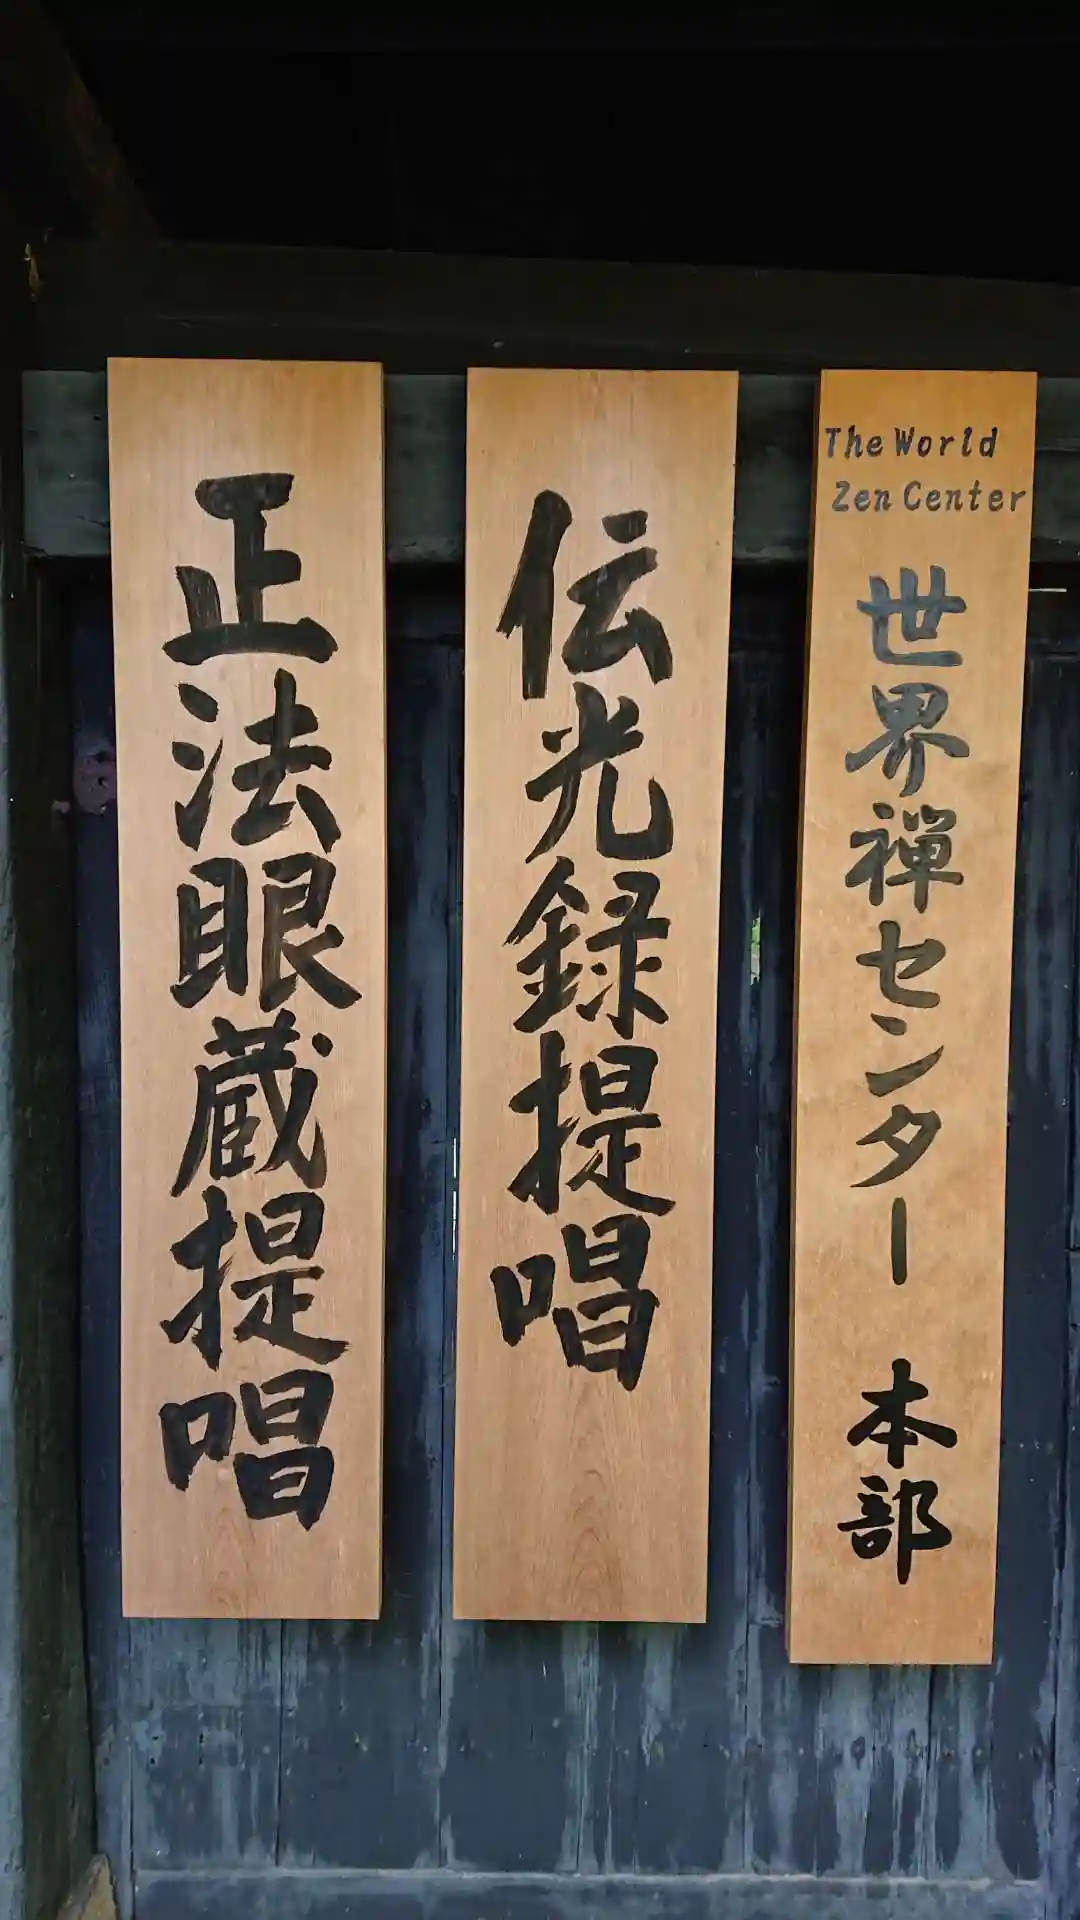 The World
Zen Center
世界禅センター 本部
伝光録提唱
正法眼蔵提唱